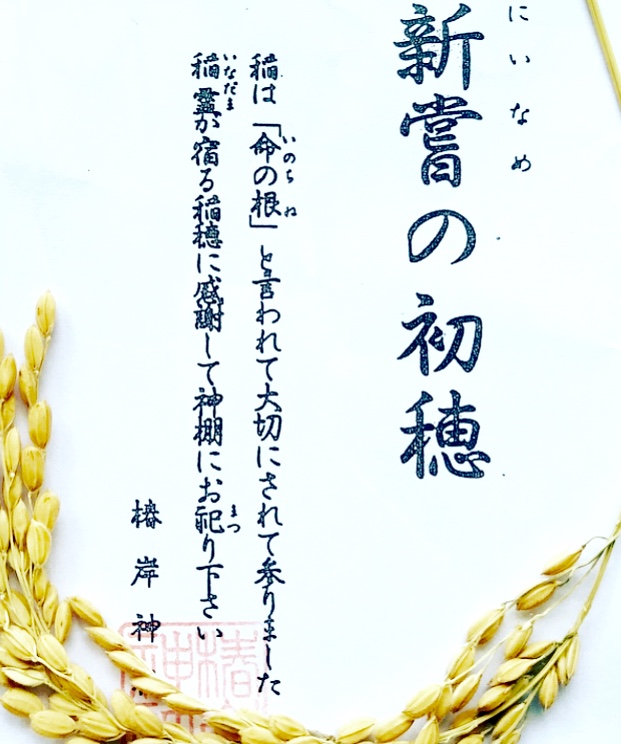 にいなめ
新嘗の初穂
いのち ね
稲は「命の根」と言われて大切にされて参りました
いなだま まつ
稲霊が宿る稲穂に感謝して神棚にお祀り下さい
椿岸神